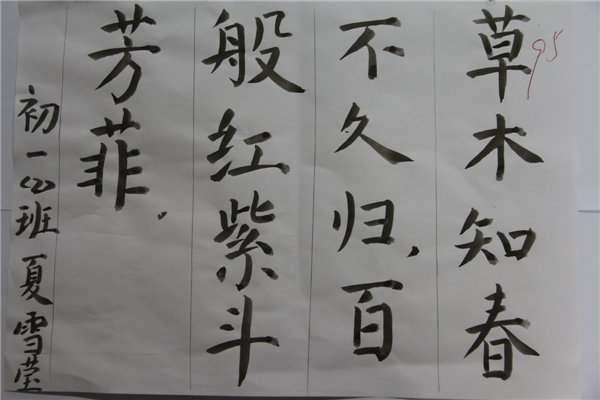 草木知春
不久归,百
般红紫斗
芳菲.
初一(2)班 夏雪莹
95